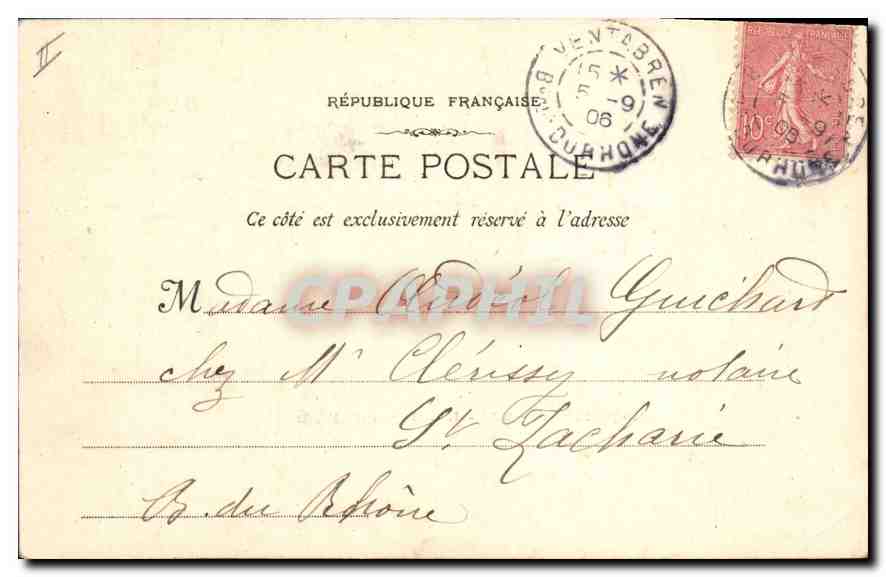 II
VENTABREN
15 *
5 -9
06
BCHES DU RHONE
REPUBLIQUE FRANÇAISE
10c
RÉPUBLIQUE FRANÇAISE
CARTE POSTALE
Ce côté est exclusivement réservé à l'adresse
CPARHIL
Madame Guichard
chez Mr Clérissy notaire
St Zacharie
B. du Rhône